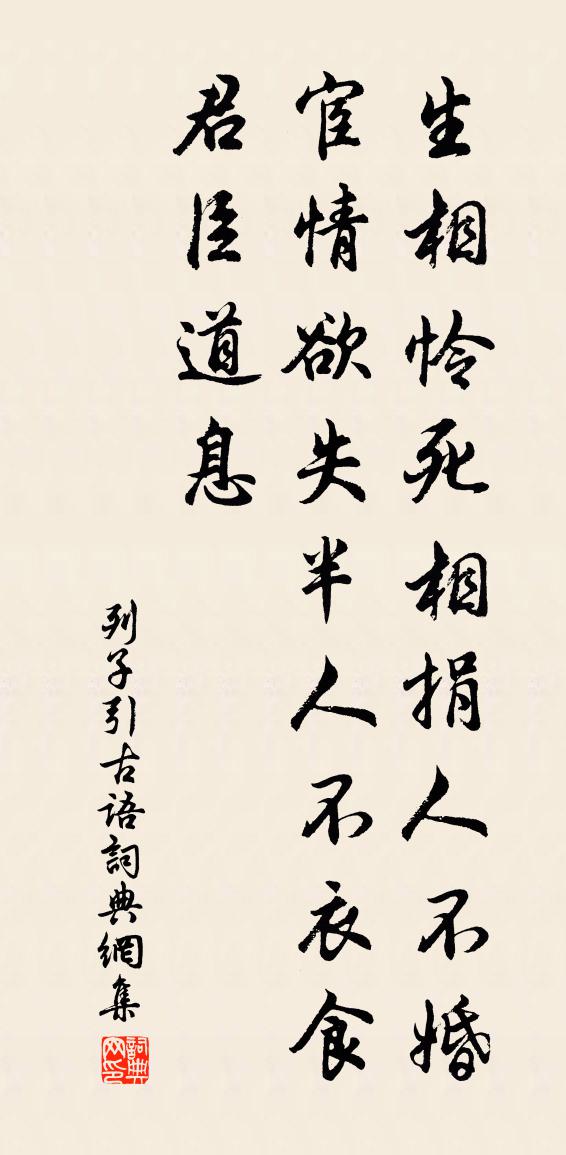 生相怜死相捐人不婚
宦情欲失半人不衣食
君臣道息
列子引古语詞典網集
詞典网印